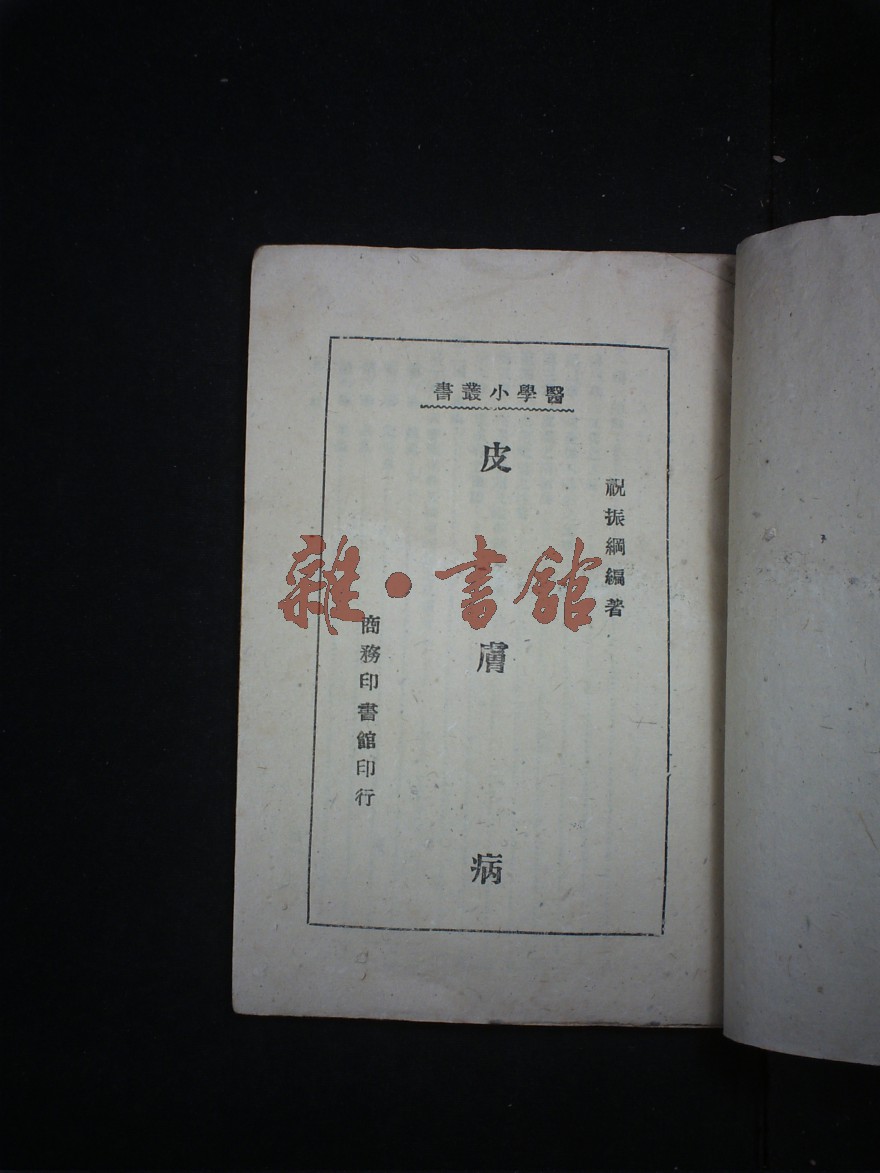 醫學小叢書
祝振綱編著
皮膚病
商務印書館印行
雜·書館